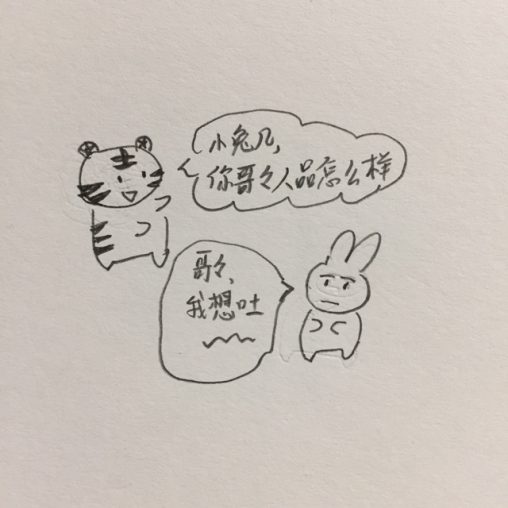 小兔几,
你哥々人品怎么样
哥々,
我想吐